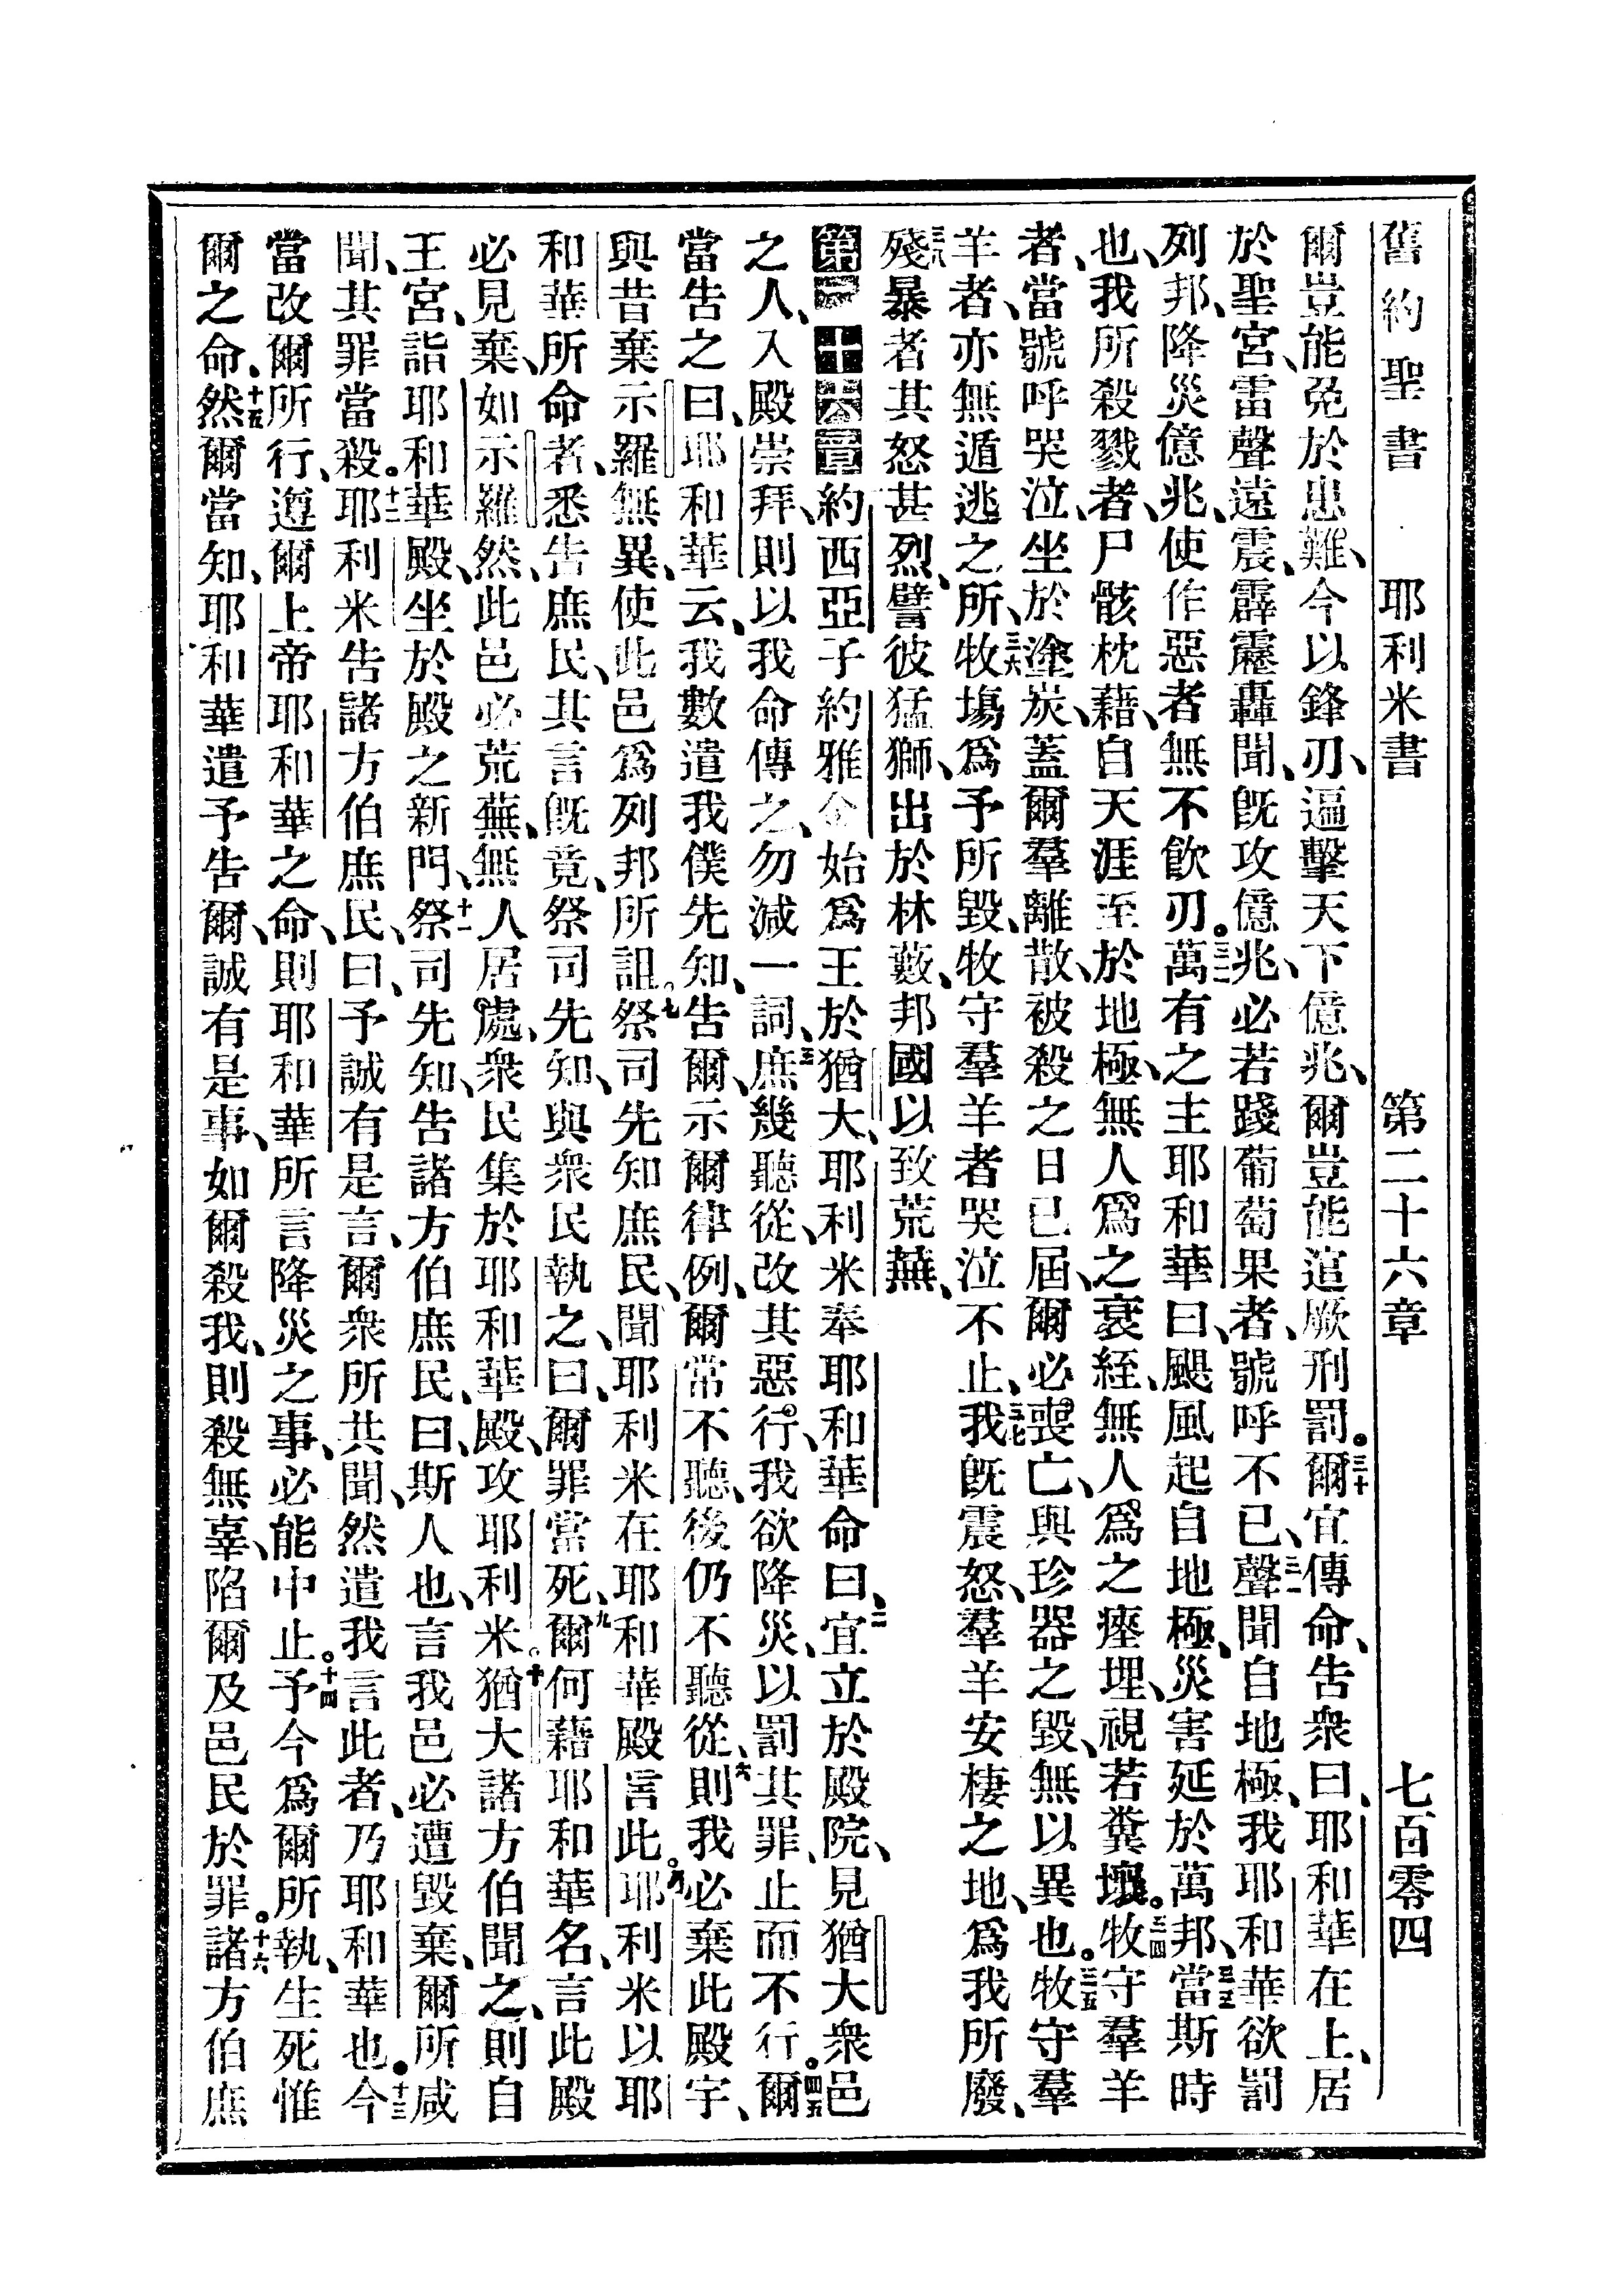 舊約聖書 耶利米書 第二十六章 七百零四
爾豈能免於患難、今以鋒刃、逼擊天下億兆、爾豈能逭厥刑罰。三十爾宜傳命、告衆曰、耶和華在上、居
於聖宮、雷聲遠震、霹靂轟聞、旣攻億兆、必若踐葡萄果者、號呼不已、三一聲聞自地極、我耶和華欲罰
列邦、降災億兆、使作惡者無不飲刃。三二萬有之主耶和華曰、颶風起自地極、災害延於萬邦、三三當斯時
也、我所殺戮者、尸骸枕藉、自天涯至於地極、無人爲之衰絰、無人爲之瘞埋、視若糞壤。三四牧守羣羊
者、當號呼哭泣、坐於塗炭、蓋爾羣離散、被殺之日已屆、爾必喪亡、與珍器之毀、無以異也。三五牧守羣
羊者、亦無遁逃之所、三六牧場爲予所毀、牧守羣羊者哭泣不止、三七我旣震怒、羣羊安棲之地、爲我所廢、
三八殘暴者其怒甚烈、譬彼猛獅、出於林藪、邦國以致荒蕪、
第二十六章約西亞子約雅金始爲王於猶大、耶利米奉耶和華命曰、二宜立於殿院、見猶大衆邑
之人、入殿崇拜、則以我命傳之、勿減一詞、三庶幾聽從、改其惡行、我欲降災、以罰其罪、止而不行。四五爾
當告之曰、耶和華云、我數遣我僕先知、告爾、示爾律例、爾常不聽、後仍不聽從、六則我必棄此殿宇、
與昔棄示羅無異、使此邑爲列邦所詛。七祭司先知庶民、聞耶利米在耶和華殿言此。八耶利米以耶
和華所命者、悉告庶民、其言旣竟、祭司先知、與衆民執之、曰、爾罪當死、九爾何藉耶和華名、言此殿
必見棄、如示羅然、此邑必荒蕪、無人居處、衆民集於耶和華殿、攻耶利米。十猶大諸方伯聞之、則自
王宮、詣耶和華殿、坐於殿之新門、十一祭司先知、告諸方伯庶民、曰、斯人也、言我邑必遭毀棄、爾所咸
聞、其罪當殺。十二耶利米告諸方伯庶民、曰、予誠有是言、爾衆所共聞、然遣我言此者、乃耶和華也。十三今
當改爾所行、遵爾上帝耶和華之命、則耶和華所言降災之事、必能中止。十四予今爲爾所執、生死惟
爾之命、十五然爾當知、耶和華遣予告爾、誠有是事、如爾殺我、則殺無辜、陷爾及邑民於罪。十六諸方伯庶